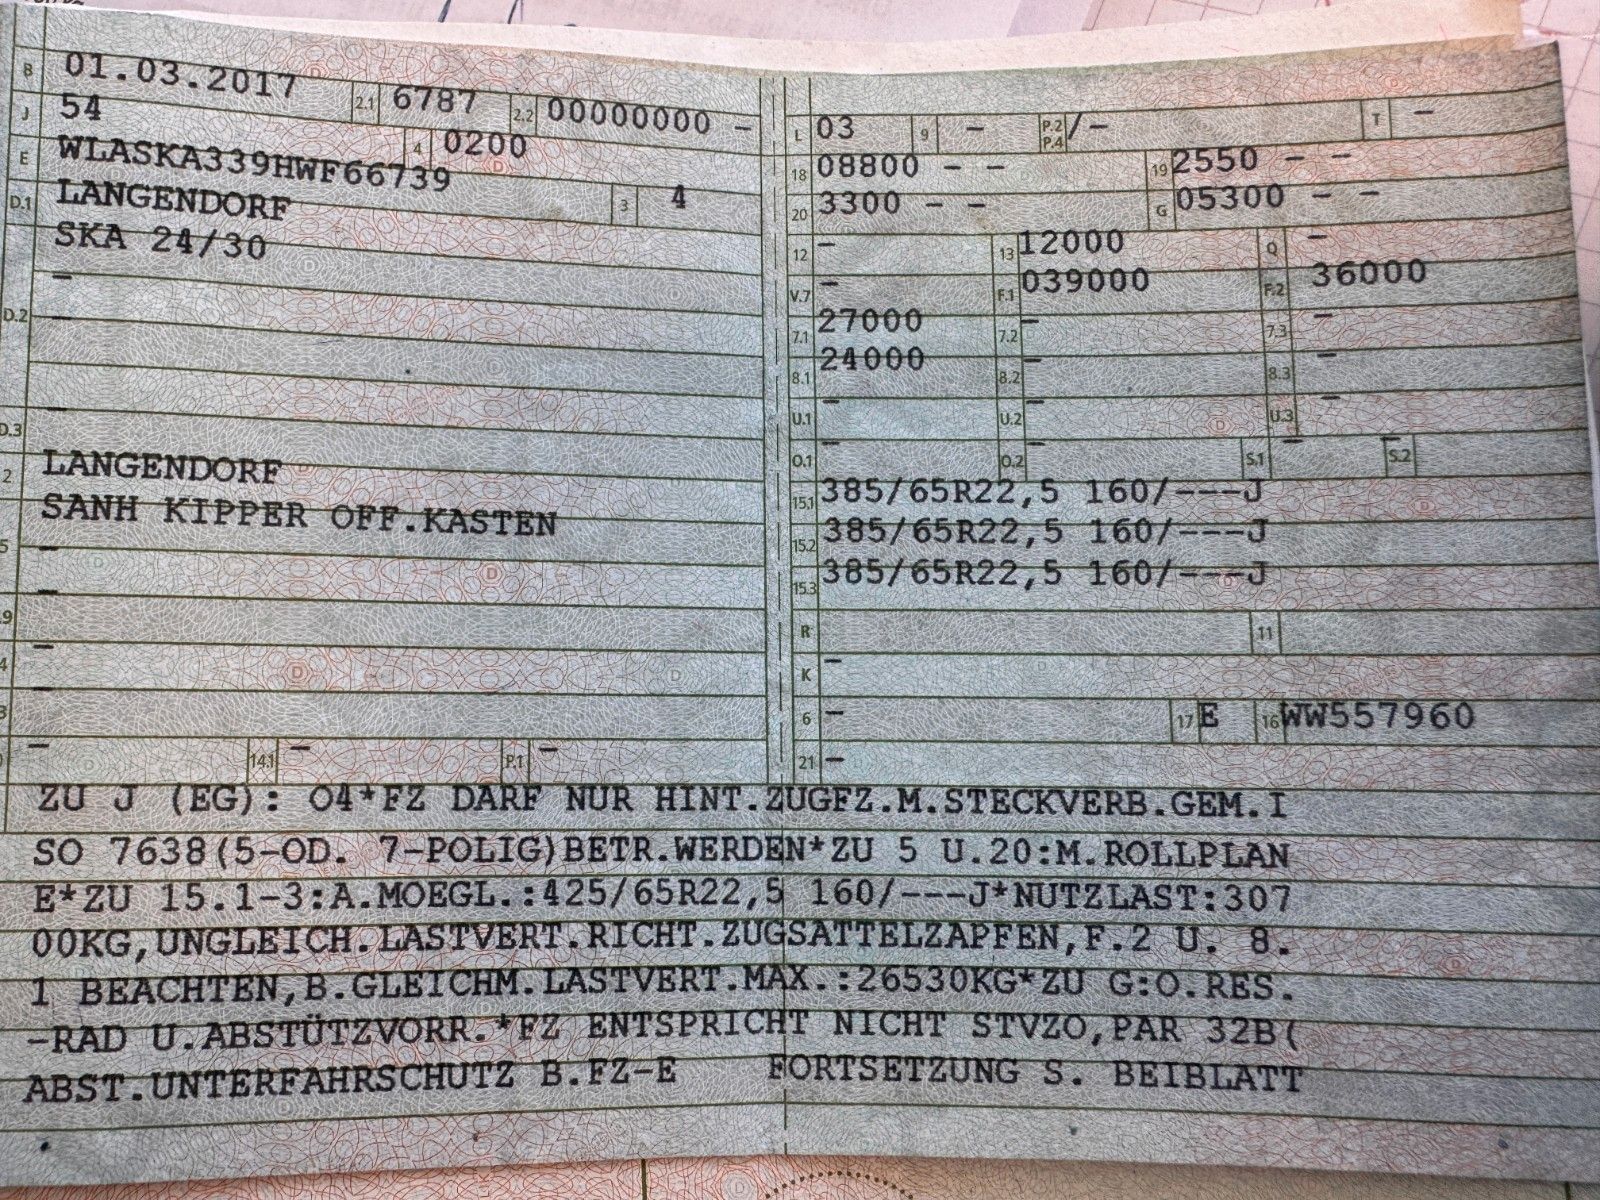 B 01.03.2017 2.1 6787 2.2 00000000 -
J 54 4 0200
E WLASKA339HWF66739 3 4
D.1 LANGENDORF
SKA 24/30
-
D.2 -
D.3 -
2 LANGENDORF
SANH KIPPER OFF.KASTEN
5 -
-
.9 -
4 -
3
- 14.1 - P.1 -
L 03 9 - P.2 P.4 /- T -
18 08800 - - 19 2550 - -
20 3300 - - G 05300 - -
12 - 13 12000 Q -
V.7 - F.1 039000 F.2 36000
7.1 27000 7.2 - 7.3 -
8.1 24000 8.2 - 8.3 -
U.1 - U.2 - U.3 -
O.1 - O.2 - S.1 - S.2 -
15.1 385/65R22,5 160/---J
15.2 385/65R22,5 160/---J
15.3 385/65R22,5 160/---J
R 11
K -
6 - 17 E 16 WW557960
21 -
ZU J (EG): O4*FZ DARF NUR HINT.ZUGFZ.M.STECKVERB.GEM.I
SO 7638(5-OD. 7-POLIG)BETR.WERDEN*ZU 5 U.20:M.ROLLPLAN
E*ZU 15.1-3:A.MOEGL.:425/65R22,5 160/---J*NUTZLAST:307
00KG,UNGLEICH.LASTVERT.RICHT.ZUGSATTELZAPFEN,F.2 U. 8.
1 BEACHTEN,B.GLEICHM.LASTVERT.MAX.:26530KG*ZU G:O.RES.
-RAD U.ABSTÜTZVORR.*FZ ENTSPRICHT NICHT STVZO,PAR 32B(
ABST.UNTERFAHRSCHUTZ B.FZ-E FORTSETZUNG S. BEIBLATT